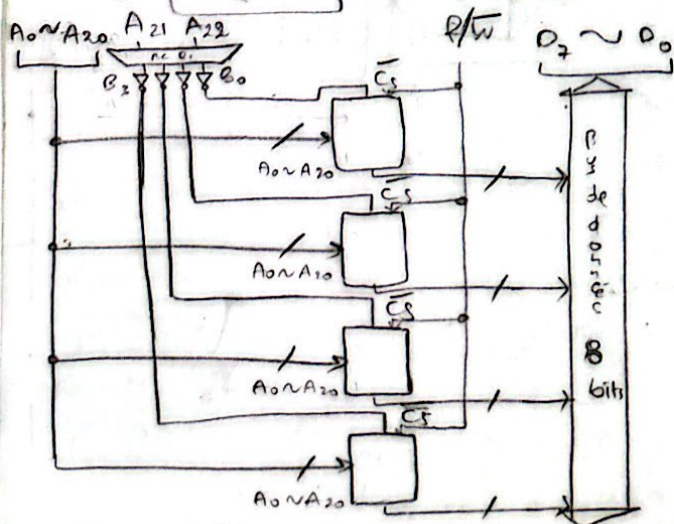 A0~A20 A21 A22 R/W̅ D7 ~ D0
B3 B0 C̅S̅
A0~A20
C̅S̅
A0~A20
C̅S̅
A0~A20
C̅S̅
A0~A20
Bus de donnée 8 bits